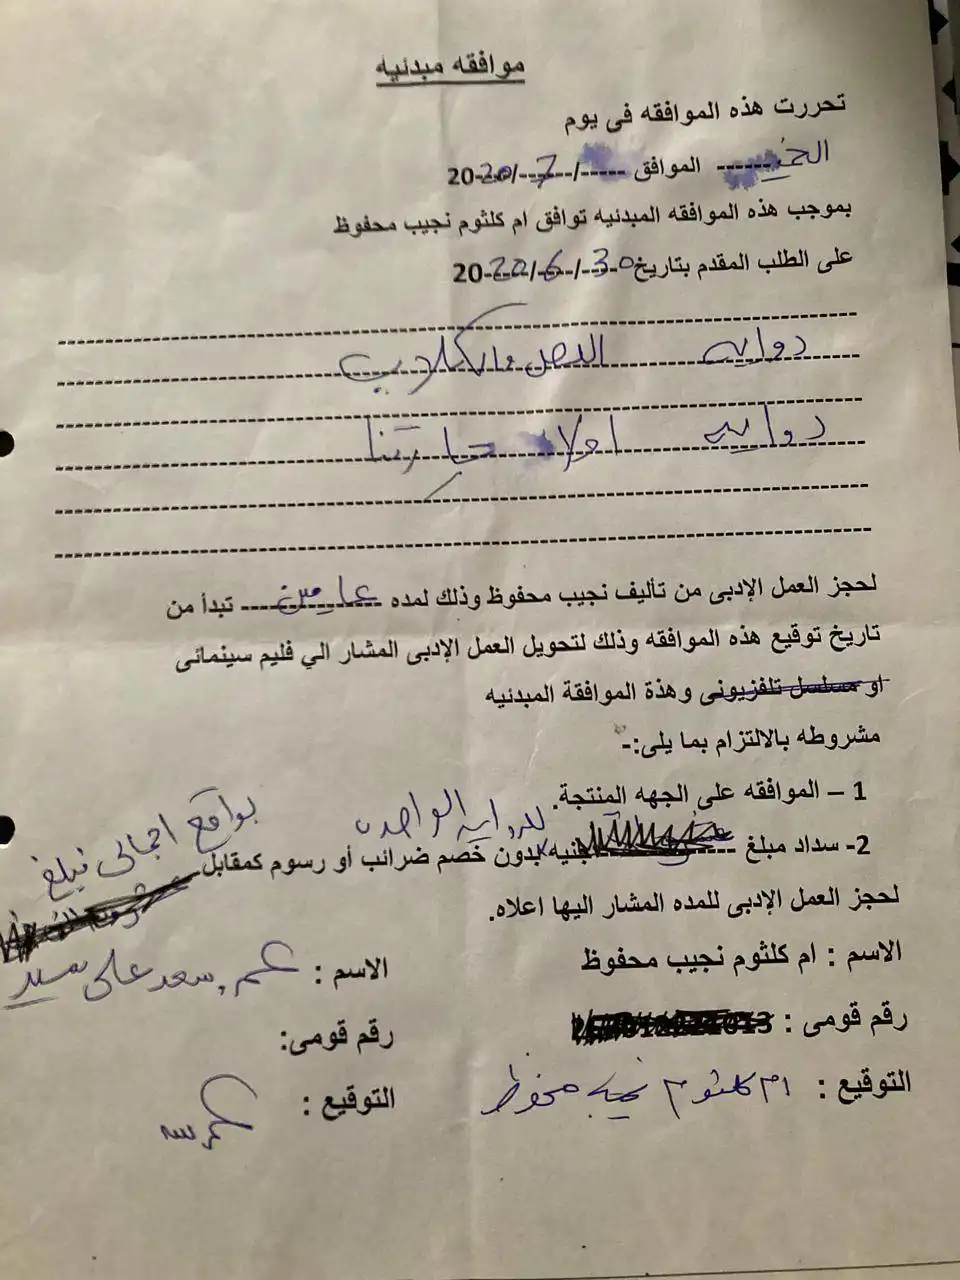 موافقه مبدئيه
تحررت هذه الموافقه فى يوم
الموافق -----/--7---/2020
بموجب هذه الموافقه المبدئيه توافق ام كلثوم نجيب محفوظ
على الطلب المقدم بتاريخ 30/6/2020
روايه اللص والكلاب
روايه اولاد حارتنا
لحجز العمل الإدبى من تأليف نجيب محفوظ وذلك لمده عامين تبدأ من
تاريخ توقيع هذه الموافقه وذلك لتحويل العمل الإدبى المشار الي فليم سينمائى
او مسلسل تلفزيونى وهذة الموافقة المبدئيه
مشروطه بالالتزام بما يلى:-
1 – الموافقه على الجهه المنتجة.
2- سداد مبلغ ------- جنيه للروايه الواحده بدون خصم ضرائب أو رسوم كمقابل
بواقع اجمالى مبلغ
لحجز العمل الإدبى للمده المشار اليها اعلاه.
الاسم : ام كلثوم نجيب محفوظ
الاسم : عمرو سعد على سيد
رقم قومى :
رقم قومى:
التوقيع : ام كلثوم نجيب محفوظ
التوقيع :